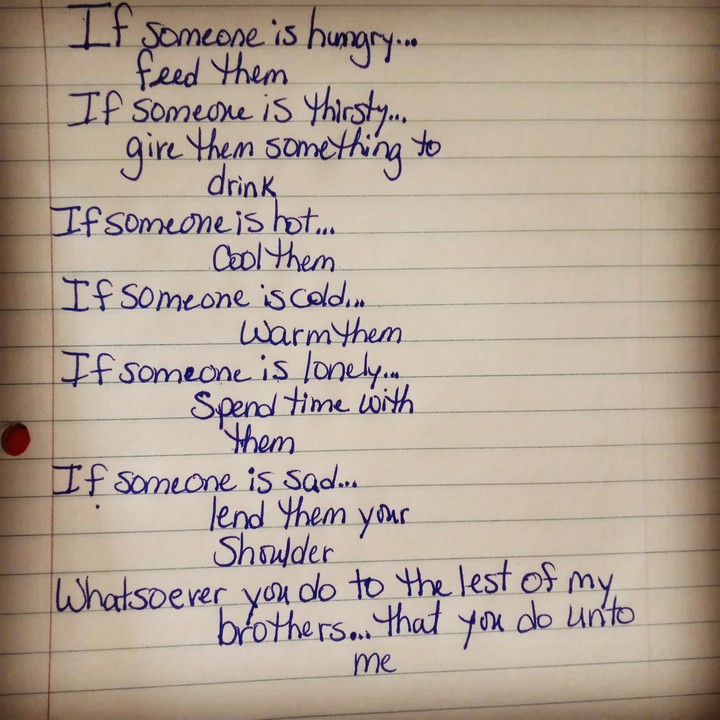 If someone is hungry...
feed them
If someone is thirsty...
give them something to
drink
If someone is hot...
Cool them
If someone is cold...
Warm them
If someone is lonely...
Spend time with
them
If someone is sad...
lend them your
Shoulder
Whatsoever you do to the lest of my
brothers... that you do unto
me